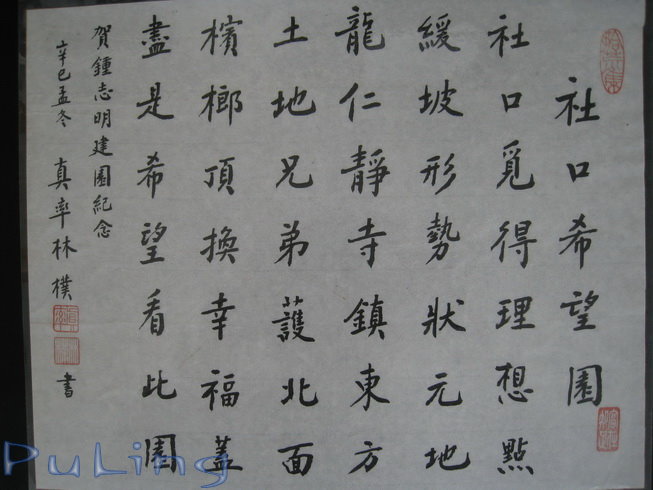 社口希望園
社口覓得理想點
緩坡形勢狀元地
龍仁靜寺鎮東方
土地兄弟護北面
檳榔頂換幸福蓋
盡是希望看此園
賀鍾志明建園紀念
辛巳孟冬 真率林樸 書
PuLing